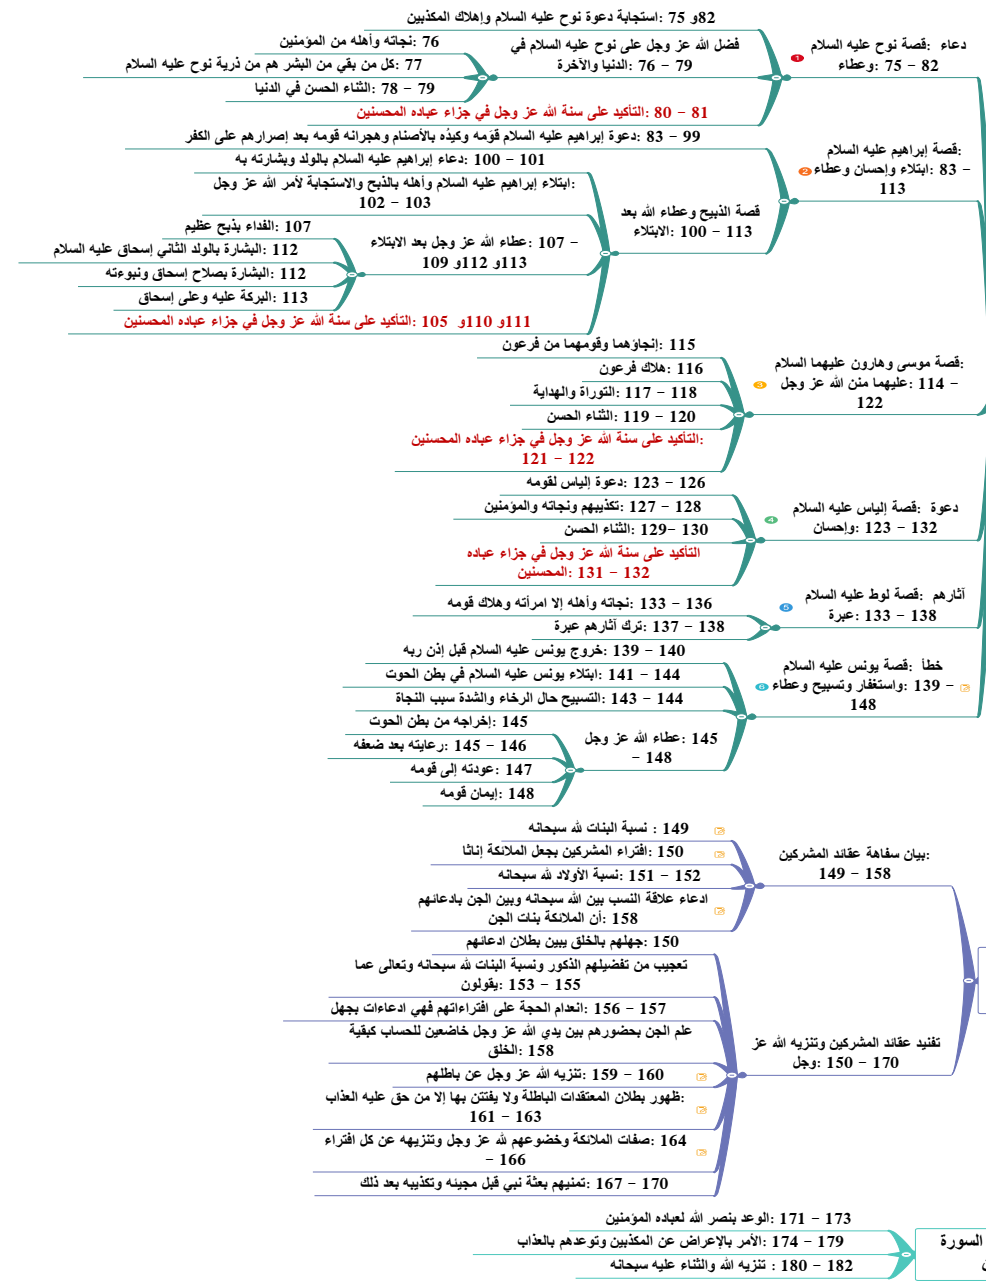 82و 75 :استجابة دعوة نوح عليه السلام وإهلاك المكذبين
دعاء :قصة نوح عليه السلام
82 – 75 :وعطاء
فضل الله عز وجل على نوح عليه السلام في
79 – 76 :الدنيا والآخرة
76 :نجاته وأهله من المؤمنين
77 :كل من بقي من البشر هم من ذرية نوح عليه السلام
79 – 78 :الثناء الحسن في الدنيا
81 – 80 :التأكيد على سنة الله عز وجل في جزاء عباده المحسنين
:قصة إبراهيم عليه السلام
– 83 :ابتلاء وإحسان وعطاء
113
99 – 83 :دعوة إبراهيم عليه السلام قومه وكيده بالأصنام وهجرانه قومه بعد إصرارهم على الكفر
قصة الذبيح وعطاء الله بعد
113 – 100 :الابتلاء
101 – 100 :دعاء إبراهيم عليه السلام بالولد وبشارته به
:ابتلاء إبراهيم عليه السلام وأهله بالذبح والاستجابة لأمر الله عز وجل
103 – 102
– 107 :عطاء الله عز وجل بعد الابتلاء
113و 112و 109
107 :الفداء بذبح عظيم
112 :البشارة بالولد الثاني إسحاق عليه السلام
112 :البشارة بصلاح إسحاق ونبوءته
113 :البركة عليه وعلى إسحاق
111و 110و 105 :التأكيد على سنة الله عز وجل في جزاء عباده المحسنين
:قصة موسى وهارون عليهما السلام
– 114 :عليهما منن الله عز وجل
122
115 :إنجاؤهما وقومهما من فرعون
116 :هلاك فرعون
118 – 117 :التوراة والهداية
120 – 119 :الثناء الحسن
:التأكيد على سنة الله عز وجل في جزاء عباده المحسنين
122 – 121
دعوة :قصة إلياس عليه السلام
132 – 123 :وإحسان
126 – 123 :دعوة إلياس لقومه
128 – 127 :تكذيبهم ونجاته والمؤمنين
130 –129 :الثناء الحسن
التأكيد على سنة الله عز وجل في جزاء عباده
132 – 131 :المحسنين
آثارهم :قصة لوط عليه السلام
138 – 133 :عبرة
136 – 133 :نجاته وأهله إلا امرأته وهلاك قومه
138 – 137 :ترك آثارهم عبرة
خطأ :قصة يونس عليه السلام
– 139 :واستغفار وتسبيح وعطاء
148
140 – 139 :خروج يونس عليه السلام قبل إذن ربه
144 – 141 :ابتلاء يونس عليه السلام في بطن الحوت
144 – 143 :التسبيح حال الرخاء والشدة سبب النجاة
145 :عطاء الله عز وجل
148 –
145 :إخراجه من بطن الحوت
146 – 145 :رعايته بعد ضعفه
147 :عودته إلى قومه
148 :إيمان قومه
:بيان سفاهة عقائد المشركين
158 – 149
149 : نسبة البنات لله سبحانه
150 :افتراء المشركين بجعل الملائكة إناثا
152 – 151 :نسبة الأولاد لله سبحانه
ادعاء علاقة النسب بين الله سبحانه وبين الجن بادعائهم
158 :أن الملائكة بنات الجن
تفنيد عقائد المشركين وتنزيه الله عز
170 – 150 :وجل
150 :جهلهم بالخلق يبين بطلان ادعائهم
تعجيب من تفضيلهم الذكور ونسبة البنات لله سبحانه وتعالى عما
155 – 153 :يقولون
157 – 156 :انعدام الحجة على افتراءاتهم فهي ادعاءات بجهل
علم الجن بحضورهم بين يدي الله عز وجل خاضعين للحساب كبقية
158 :الخلق
160 – 159 :تنزيه الله عز وجل عن باطلهم
:ظهور بطلان المعتقدات الباطلة ولا يفتتن بها إلا من حق عليه العذاب
163 – 161
164 :صفات الملائكة وخضوعهم لله عز وجل وتنزيهه عن كل افتراء
166 –
170 – 167 :تمنيهم بعثة نبي قبل مجيئه وتكذيبه بعد ذلك
السورة
173 – 171 :الوعد بنصر الله لعباده المؤمنين
179 – 174 :الأمر بالإعراض عن المكذبين وتوعدهم بالعذاب
182 – 180 : تنزيه الله والثناء عليه سبحانه